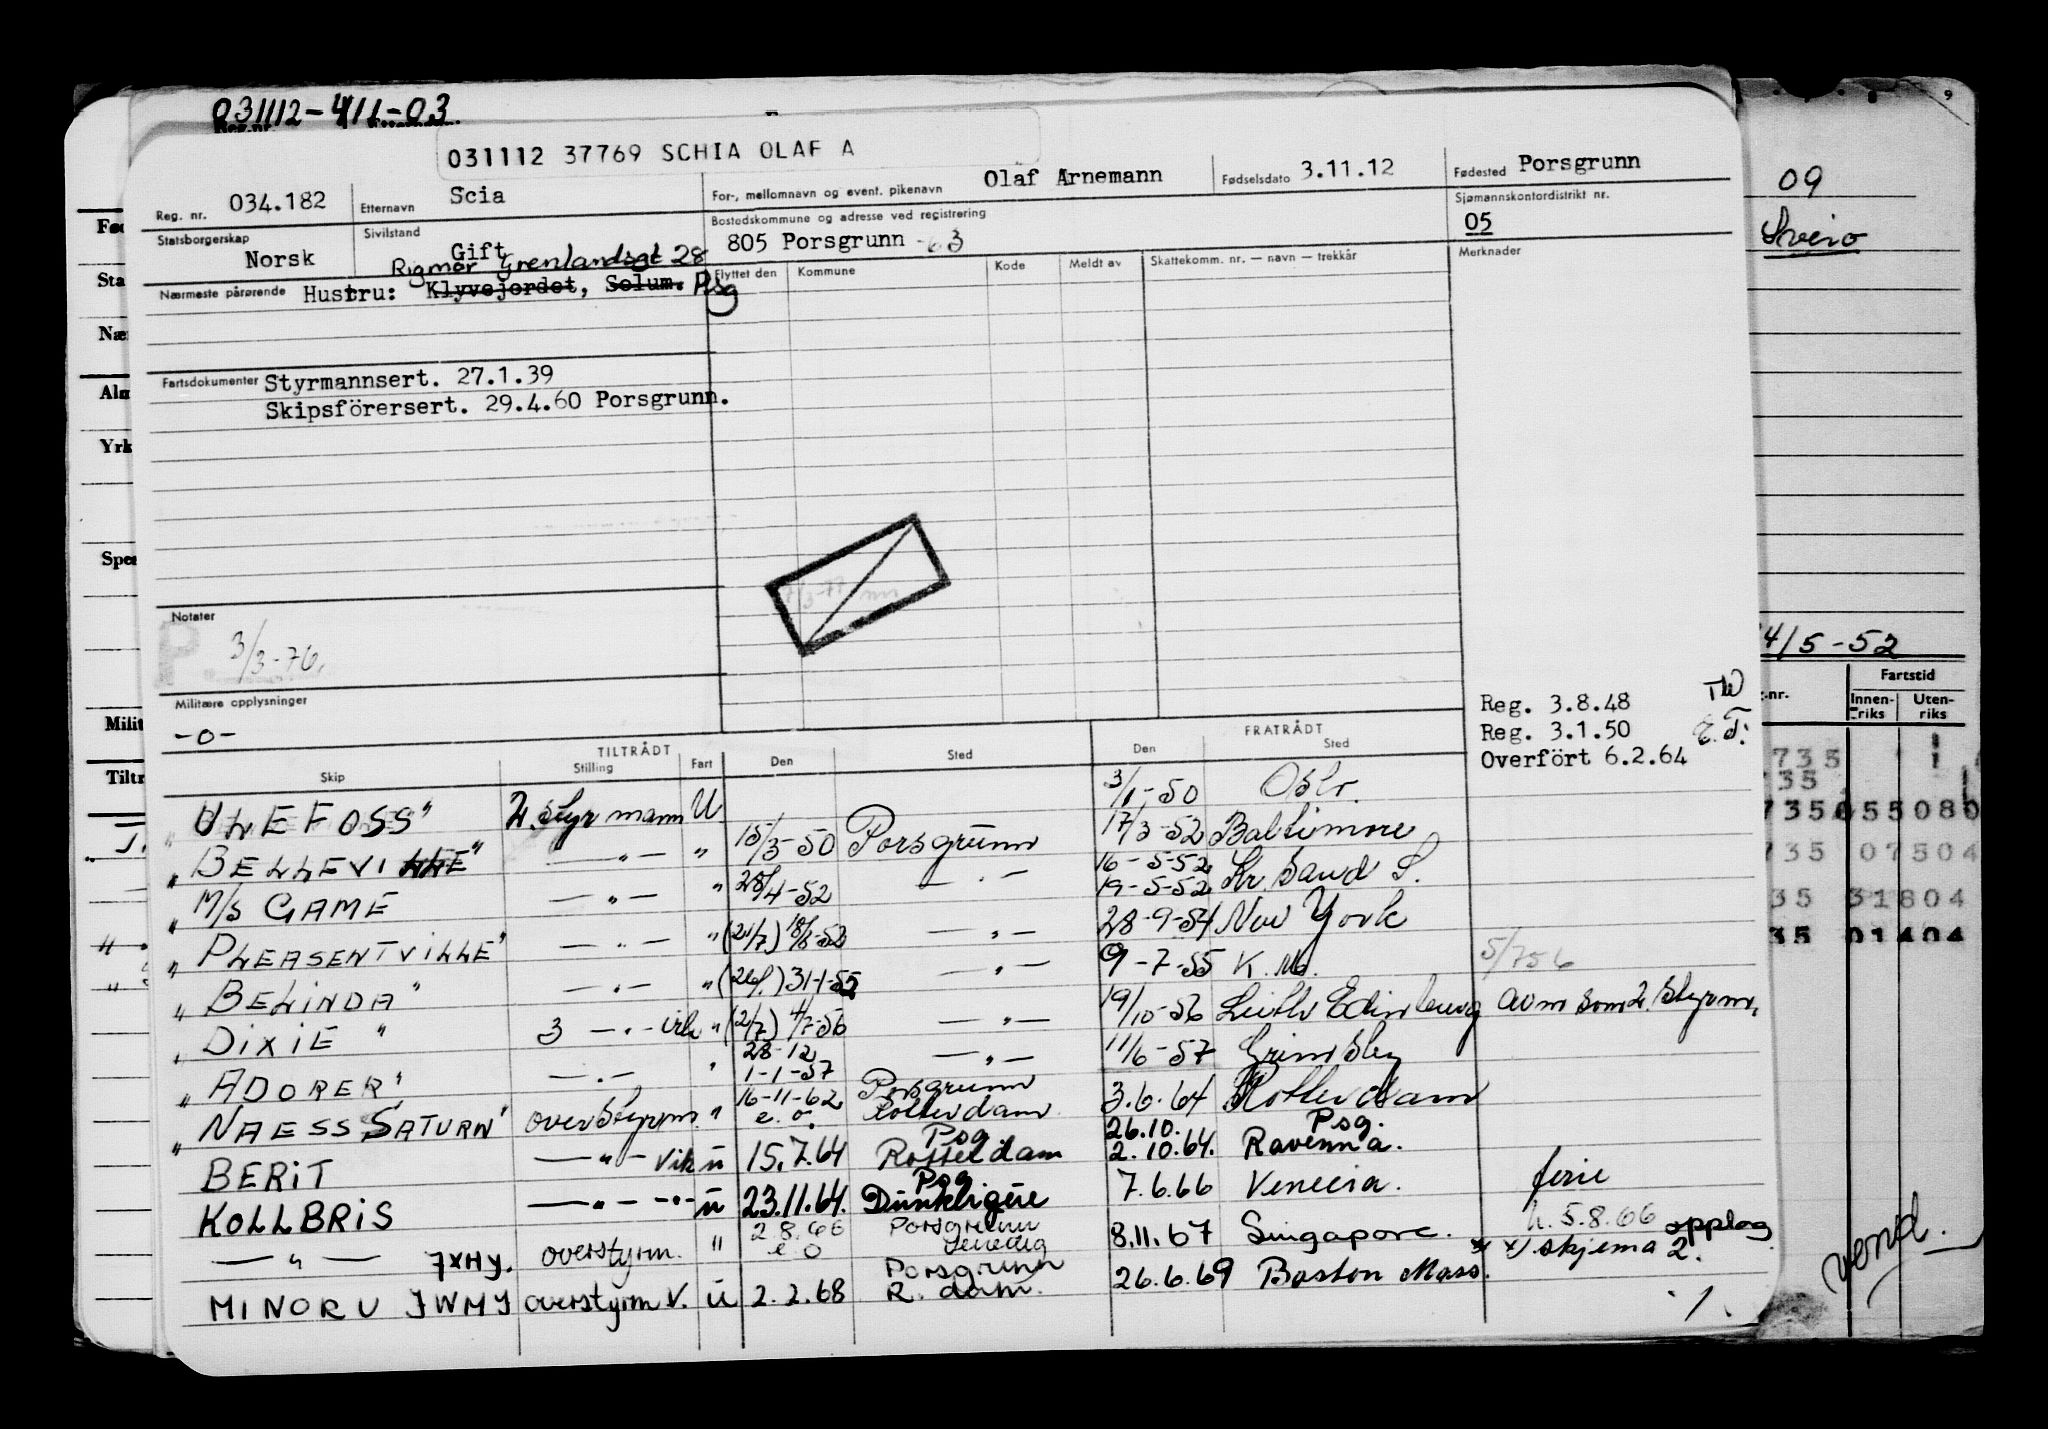 031112-411-03
031112 37769 SCHIA OLAF A
Reg. nr. 034.182 Etternavn Scia For-, mellomnavn og event. pikenavn Olaf Arnemann Fødselsdato 3.11.12 Fødested Porsgrunn
Statsborgerskap Norsk Sivilstand Gift Bostedskommune og adresse ved registrering 805 Porsgrunn -63 Sjømannskontordistrikt nr. 05
Rigmor Grenlandsgt 28
Nærmeste pårørende Hustru: Klyvejordet, Solum. Psg
Flyttet den Kommune Kode Meldt av Skattekomm. nr. — navn — trekkår Merknader
Fartsdokumenter Styrmannsert. 27.1.39
Skipsförersert. 29.4.60 Porsgrunn.
Notater
P.
3/3-76.
Militære opplysninger
-o-
Reg. 3.8.48
Reg. 3.1.50
Overfört 6.2.64
TILTRÅDT FRATRÅDT
Skip Stilling Fart Den Sted Den Sted
"ULEFOSS" 2. styrmann U 3/1-50 Oslo.
"BELLEVILLE" — " — " 15/3-50 Porsgrunn 17/3-52 Baltimore
" M/S GAME — " — " 28/4-52 — " — 16-5-52 19-5-52 Kr. Sand S.
" PLEASENTVILLE" — " — " (21/7) 18/8-52 — " — 28-9-54 New York
" BELINDA" — " — " (26/1) 31-1-55 — " — 9-7-55 K. 5/756
" DIXIE " 3 — " — " (2/7) 4/7-56 — " — 19/10-56 Leith Edinburg avm som 2. styrm.
" ADORER" — " — " 28-12 1-1-57 — " — 11/6-57 Grimsby
" NAESS SATURN" overstyrm. " 16-11-62 e.o. Porsgrunn Rotterdam 3.6.64 Rotterdam
BERIT — " — vik u 15.7.64 Psg. Rotterdam 26.10. 2.10.64. Psg. Ravenna.
KOLLBRIS — " — — " — u 23.11.64. Psg Dunkerque 7.6.66 Venecia. ferie
— " — JXHY. overstyrm. " 2.8.66 e.o Porsgrunn Venedig 8.11.67 Singapore. h. 5.8.66 opplag
MINORU JWMY overstyrm V. u 2.2.68 Porsgrunn R. dam. 26.6.69 Boston Mass. x x) skjema 2.
1.
09
Sveio
4/5-52
Fartstid
Innen-riks Uten-riks
735
35
735 055080
735 07504
35 31804
35 01404
vend.
Stat
Milit
Tiltr